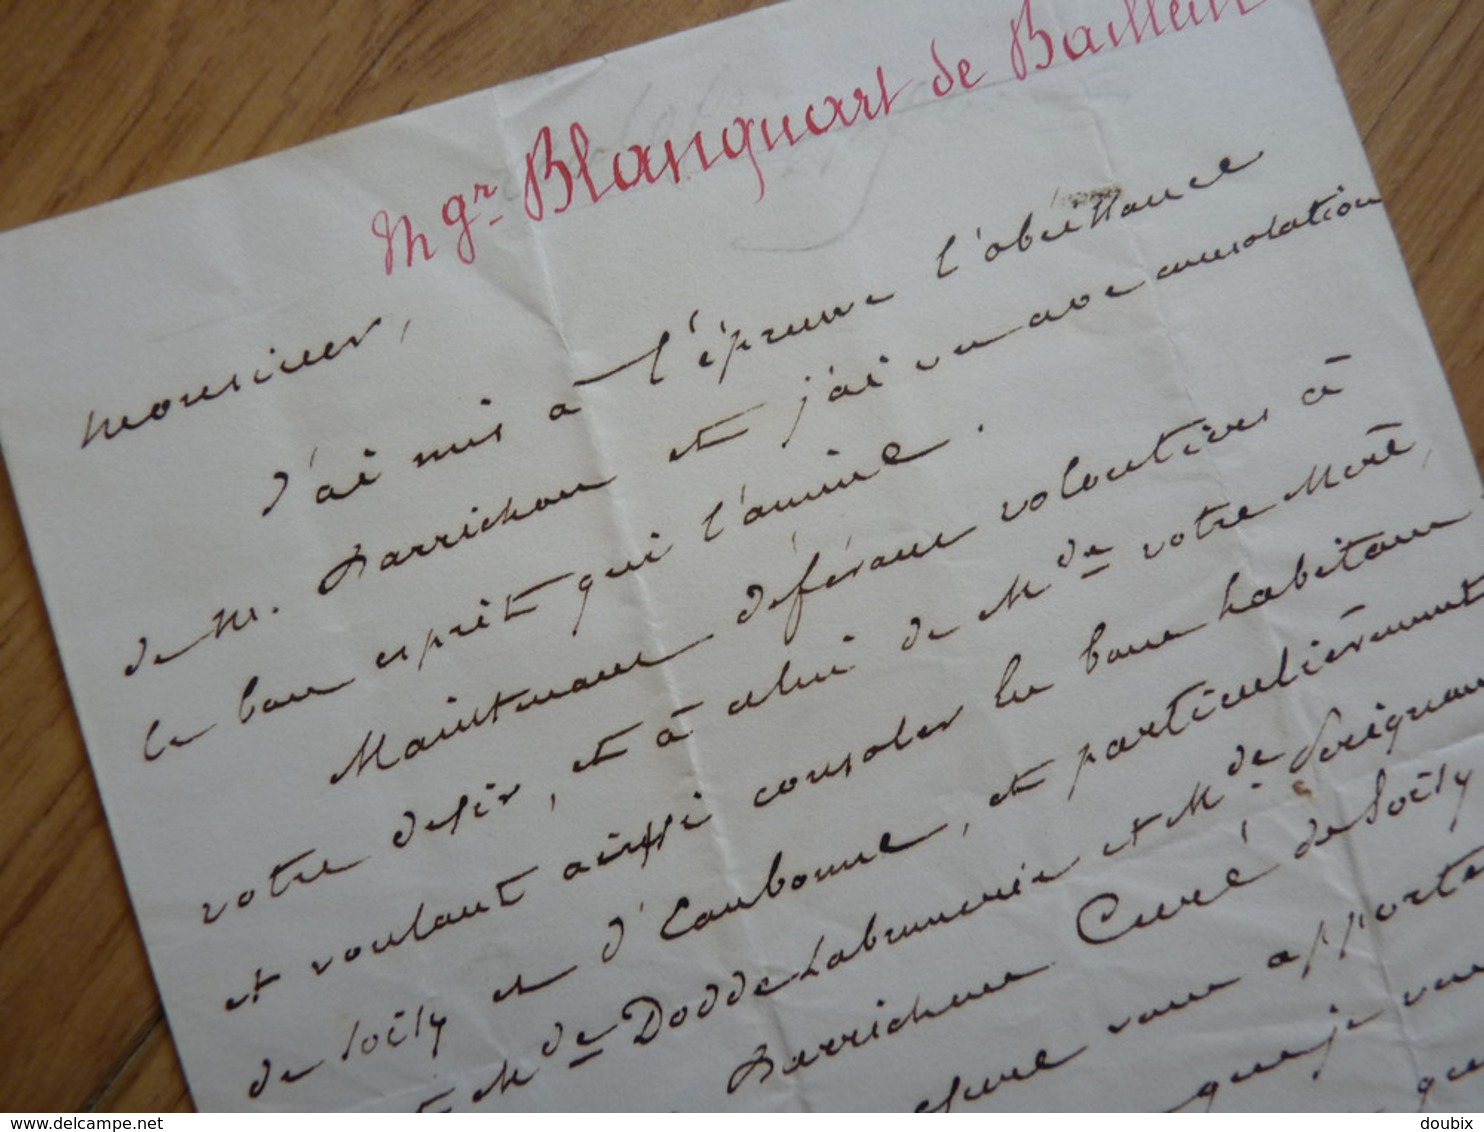 Mgr Blanquart de Bailleul
Monsieur,
J'ai mis à l'épreuve l'obéissance
de M. Barrichon et j'ai vu avec consolation
le bon esprit qui l'anime.
Maintenant déférant volontiers à
votre désir, et à celui de Mde votre Mère,
et voulant aussi consoler les bons habitans
de Soisy et d'Eaubonne, et particulièrement
et Mde Dodde Labrunerie et Mde Perignon
Barrichon Curé de Soisy
vous apporte
que je vous
doubix